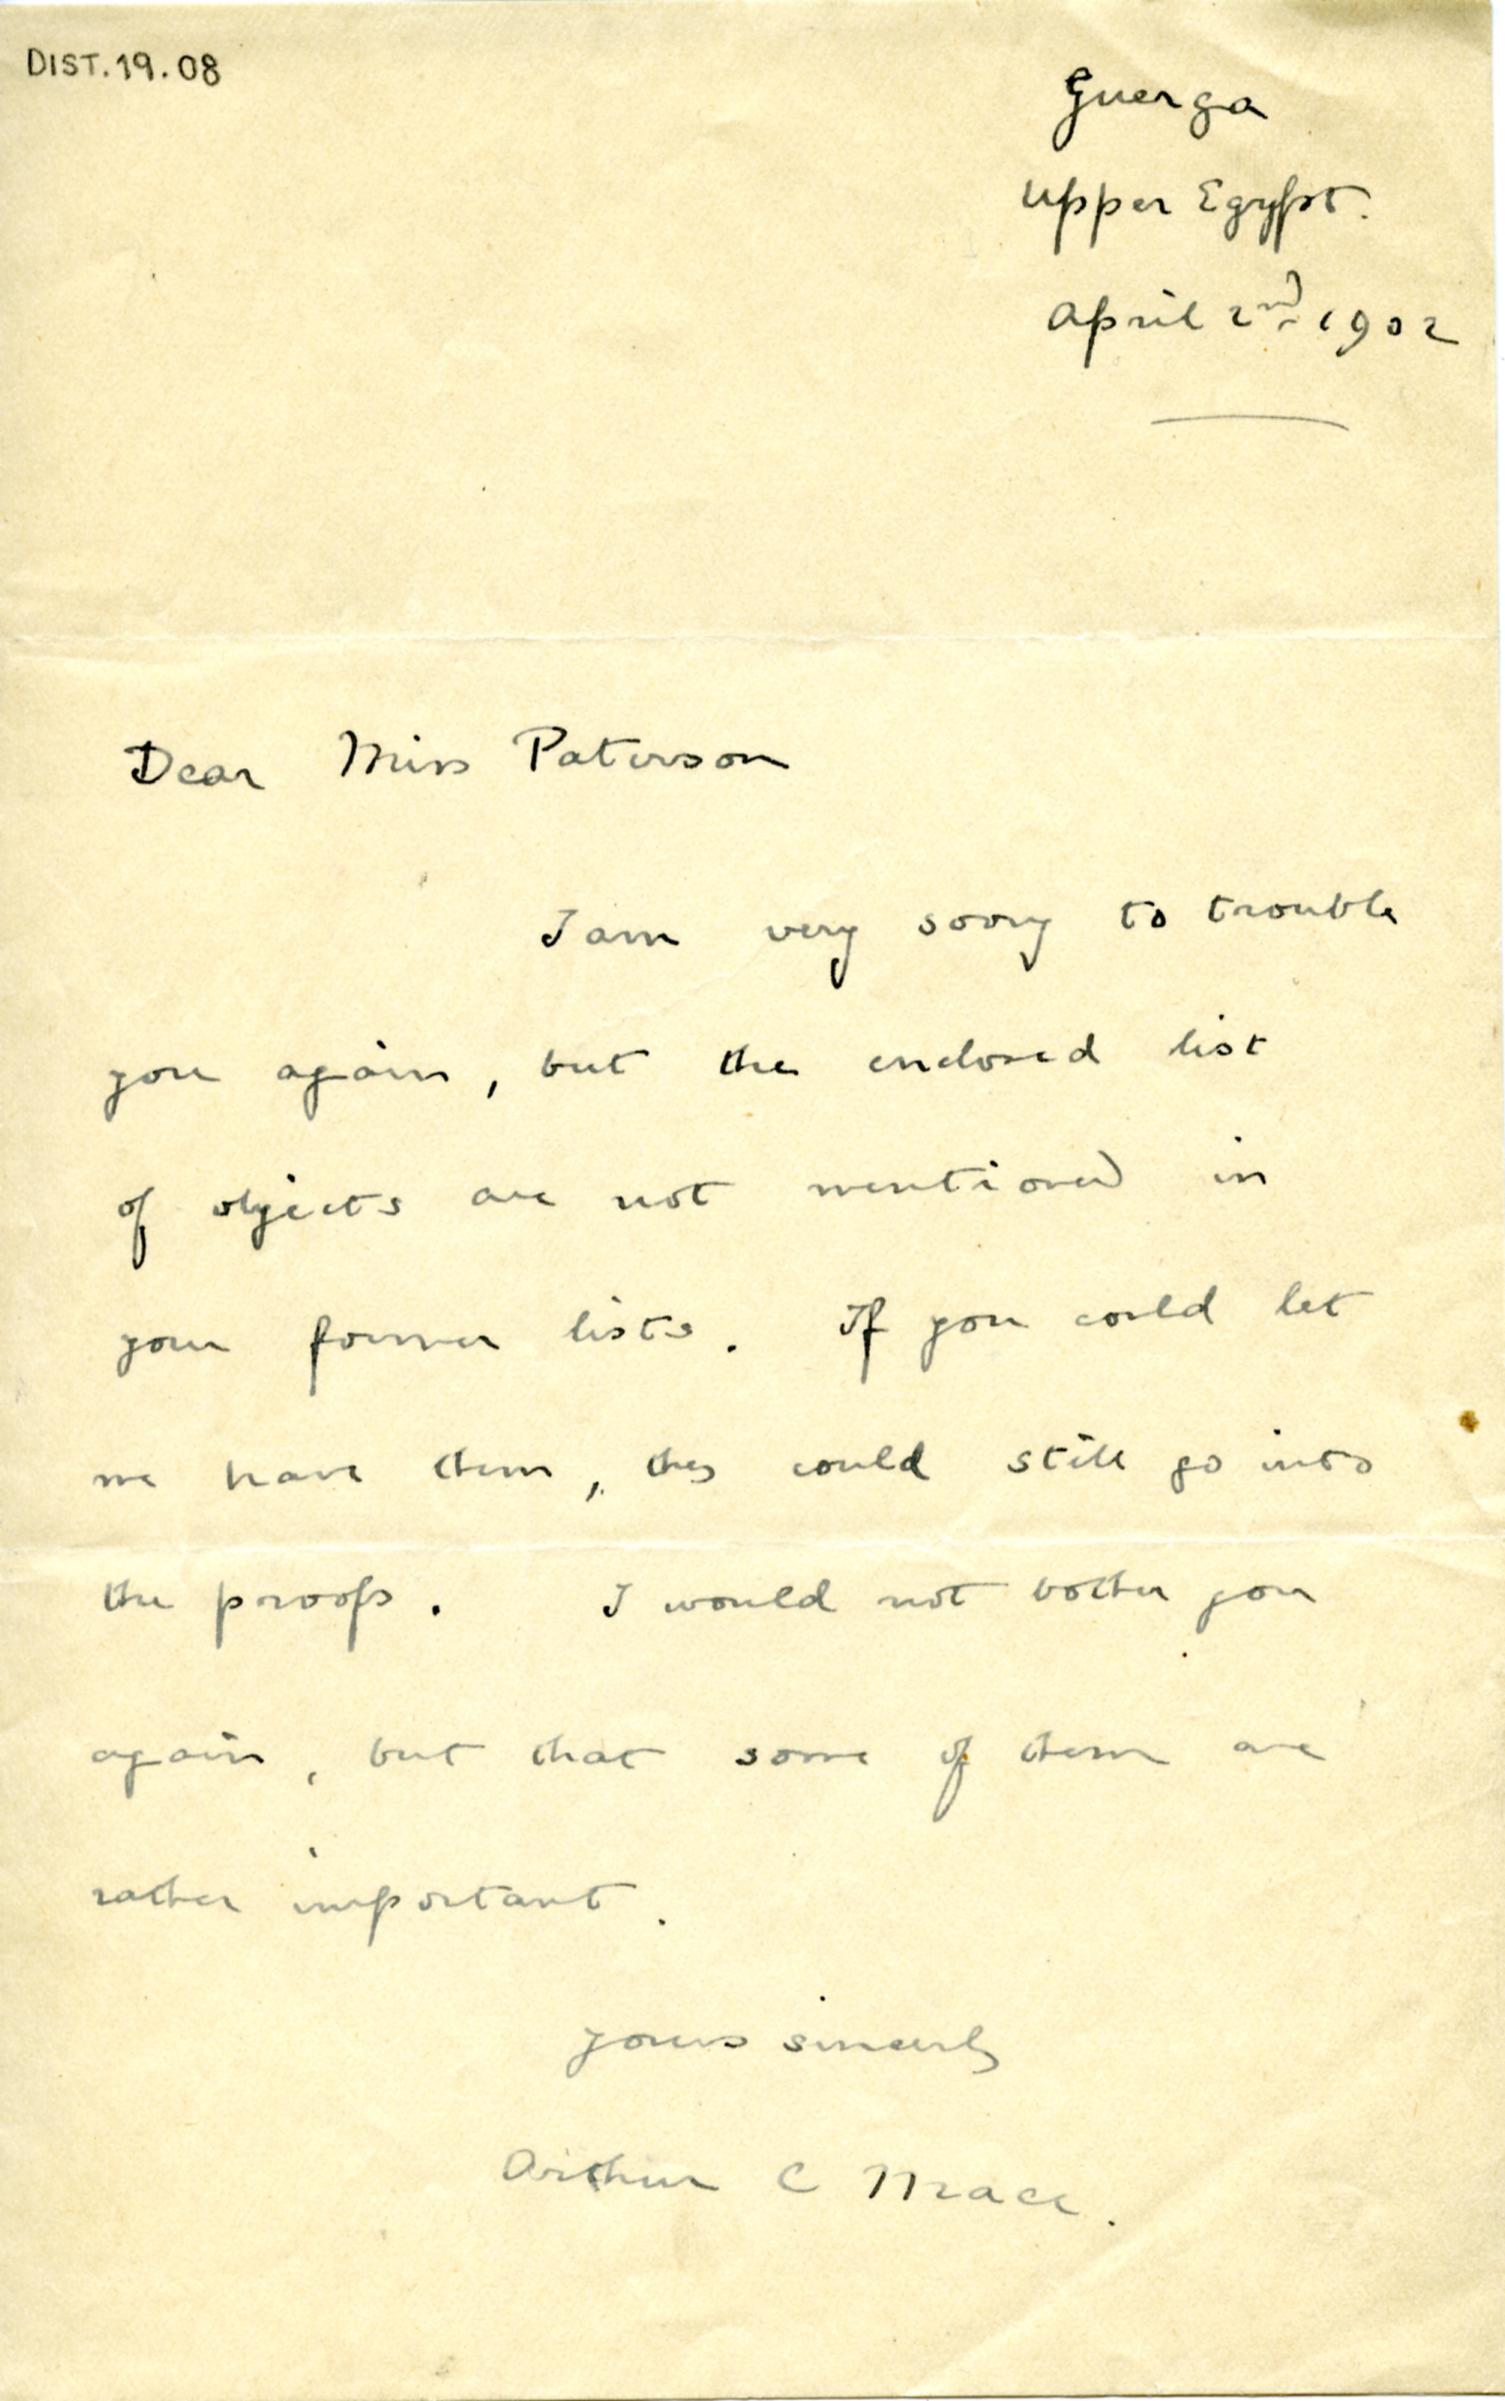 DIST.19.08
Guerga
Upper Egypt.
April 2nd 1902
Dear Miss Paterson
I am very sorry to trouble
you again, but the enclosed list
of objects are not mentioned in
your former lists. If you could let
me have them, they could still go into
the proofs. I would not bother you
again, but that some of them are
rather important.
yours sincerely
Arthur C Mace.